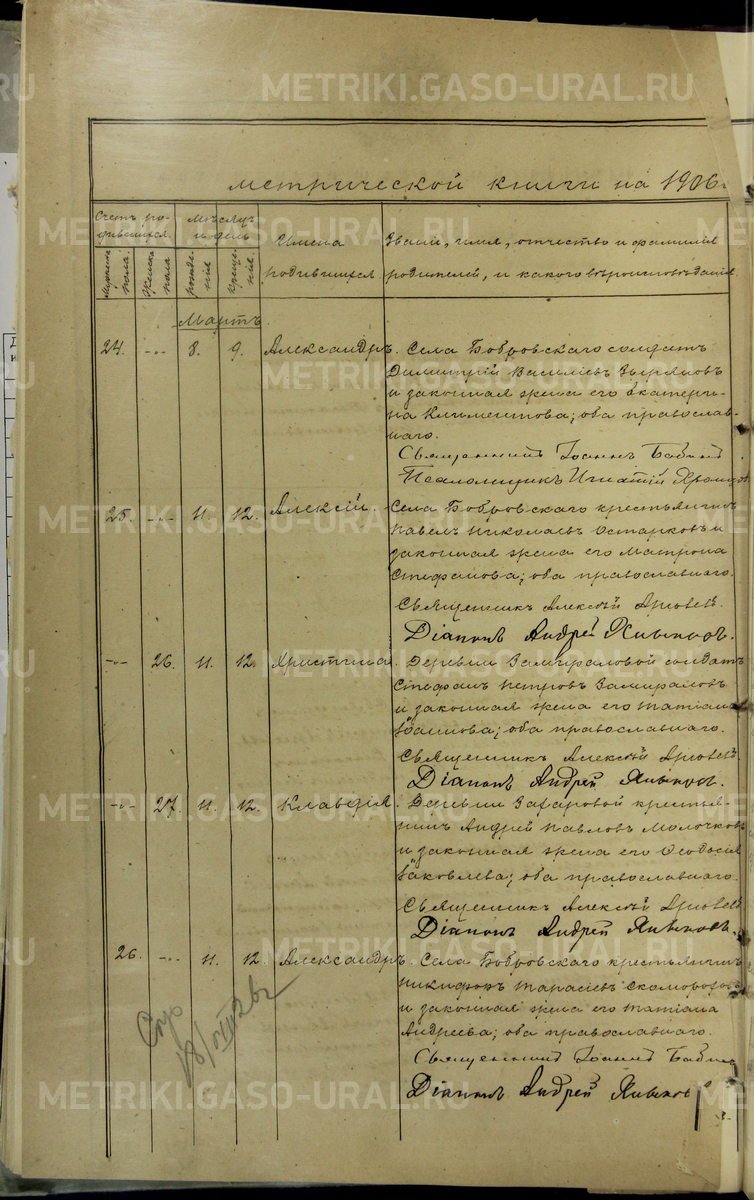 METRIKI.GASO-URAL.RU
метрической книги на 1906
Счетъ ро-
дившихся.
Мужеска
пола.
Женска
пола.
Мѣсяцъ
и день
рожде-
нія
креще-
нія.
Имена
родившихся
Званіе, имя, отчество и фамилія
родителей, и какого вѣроисповѣданія
Мартъ.
24. -"- 8. 9. Александръ. Села Бобровскаго солдатъ
Димитрій Василіевъ Зыряновъ
и законная жена его Екатери-
на Климентова; оба православ-
наго.
Священникъ Іоаннъ
Псаломщикъ Игнатій
25. -"- 11. 12. Алексій. Села Бобровскаго крестьянинъ
Павелъ Николаевъ Остарковъ и
законная жена его Матрона
Стефанова; оба православнаго.
Священникъ Алексѣй
Діаконъ Андрей
-"- 26. 11. 12. Христина. Деревни Замираловой солдатъ
Стефанъ Петровъ Замираловъ
и законная жена его Татіана
Іоаннова; оба православнаго.
Священникъ Алексѣй
Діаконъ Андрей
-"- 27. 11. 12. Клавдія. Деревни Захаровой крестья-
нинъ Андрей Павловъ Молочковъ
и законная жена его Ѳеодосія
Іаковлева; оба православнаго.
Священникъ Алексѣй
Діаконъ Андрей
26. -"- 11. 12. Александръ. Села Бобровскаго крестьянинъ
Никифоръ Тарасіевъ Скоморозовъ
и законная жена его Татіана
Андреева; оба православнаго.
Священникъ Іоаннъ
Діаконъ Андрей